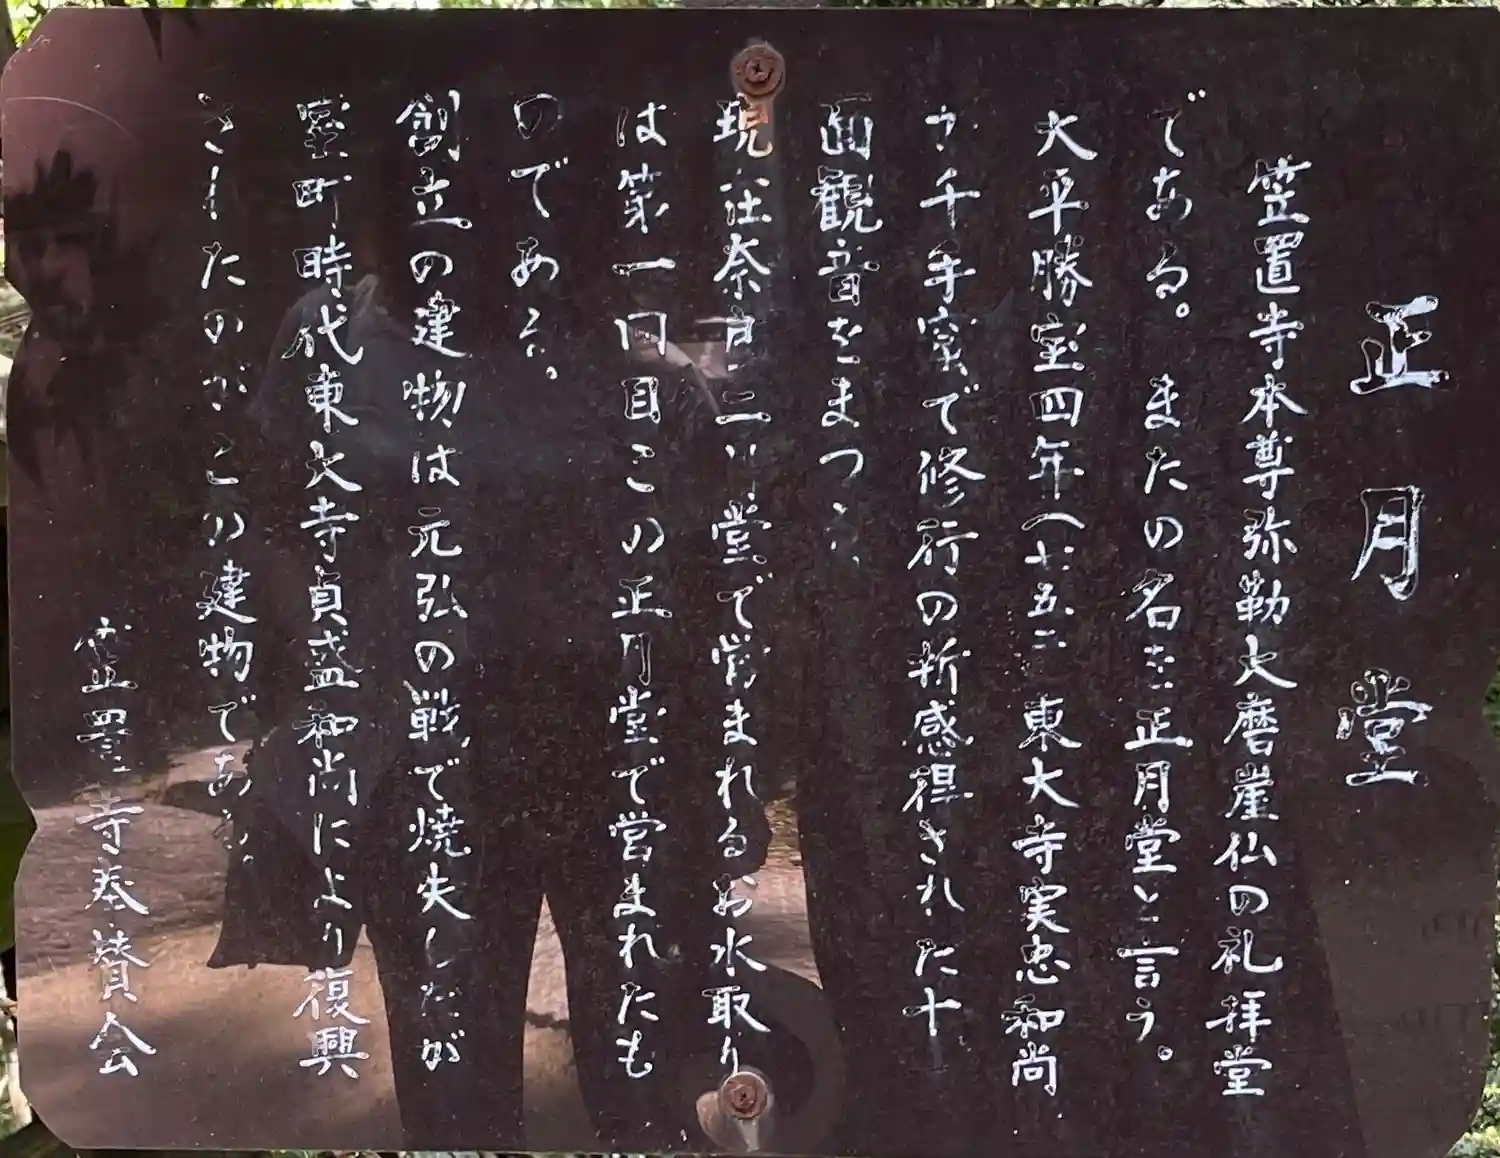 正月堂
笠置寺本尊弥勒大磨崖仏の礼拝堂
である。またの名を正月堂と言う。
大平勝宝四年(七五二 東大寺実忠和尚
が千手窟で修行の折感得された十
面観音をまつる、
現在奈良二月堂で営まれるお水取り
は第一回目この正月堂で営まれたも
のである。
創立の建物は元弘の戦で焼失したが
室町時代東大寺貞盛和尚により復興
されたのがこの建物である。
笠置寺奉賛会